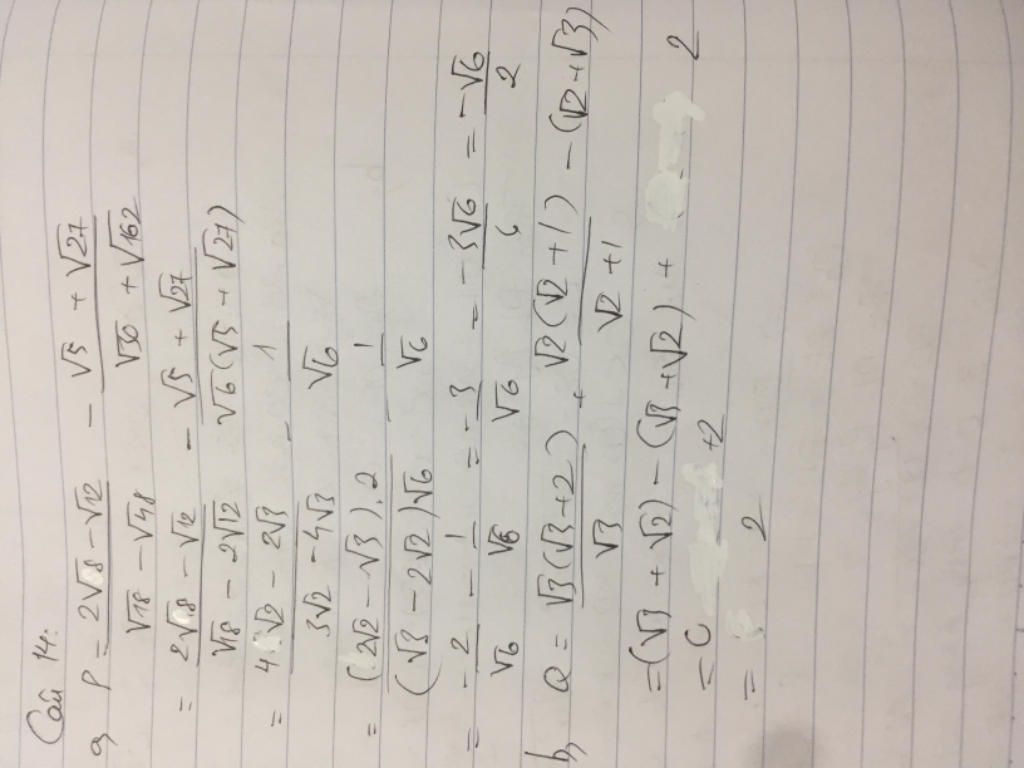 Câu 14:
a, P = (2√8 - √12)/(√18 - √48) - (√5 + √27)/(√30 + √162)
= (2√8 - √12)/(√18 - 2√12) - (√5 + √27)/(√6(√5 + √27))
= (4√2 - 2√3)/(3√2 - 4√3) - 1/√6
= ((2√2 - √3).2)/((√3 - 2√2)√6) - 1/√6
= -2/√6 - 1/√6 = -3/√6 = -3√6/6 = -√6/2
b, Q = √3(√3+2)/√3 + √2(√2+1)/(√2+1) - (√2+√3)
= (√3 + √2) - (√3 + √2) + 2
= 0 + 2
= 2